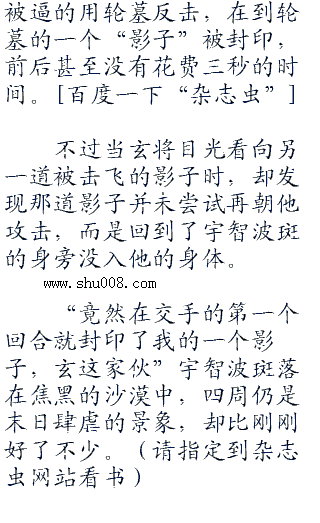 被逼的用轮墓反击，在到轮
墓的一个“影子”被封印，
前后甚至没有花费三秒的时
间。[百度一下“杂志虫”]
不过当玄将目光看向另
一道被击飞的影子时，却发
现那道影子并未尝试再朝他
攻击，而是回到了宇智波斑
的身旁没入他的身体。
www.shu008.com
“竟然在交手的第一个
回合就封印了我的一个影
子，玄这家伙”宇智波斑落
在焦黑的沙漠中，四周仍是
末日肆虐的景象，却比刚刚
好了不少。（请指定到杂志
虫网站看书）